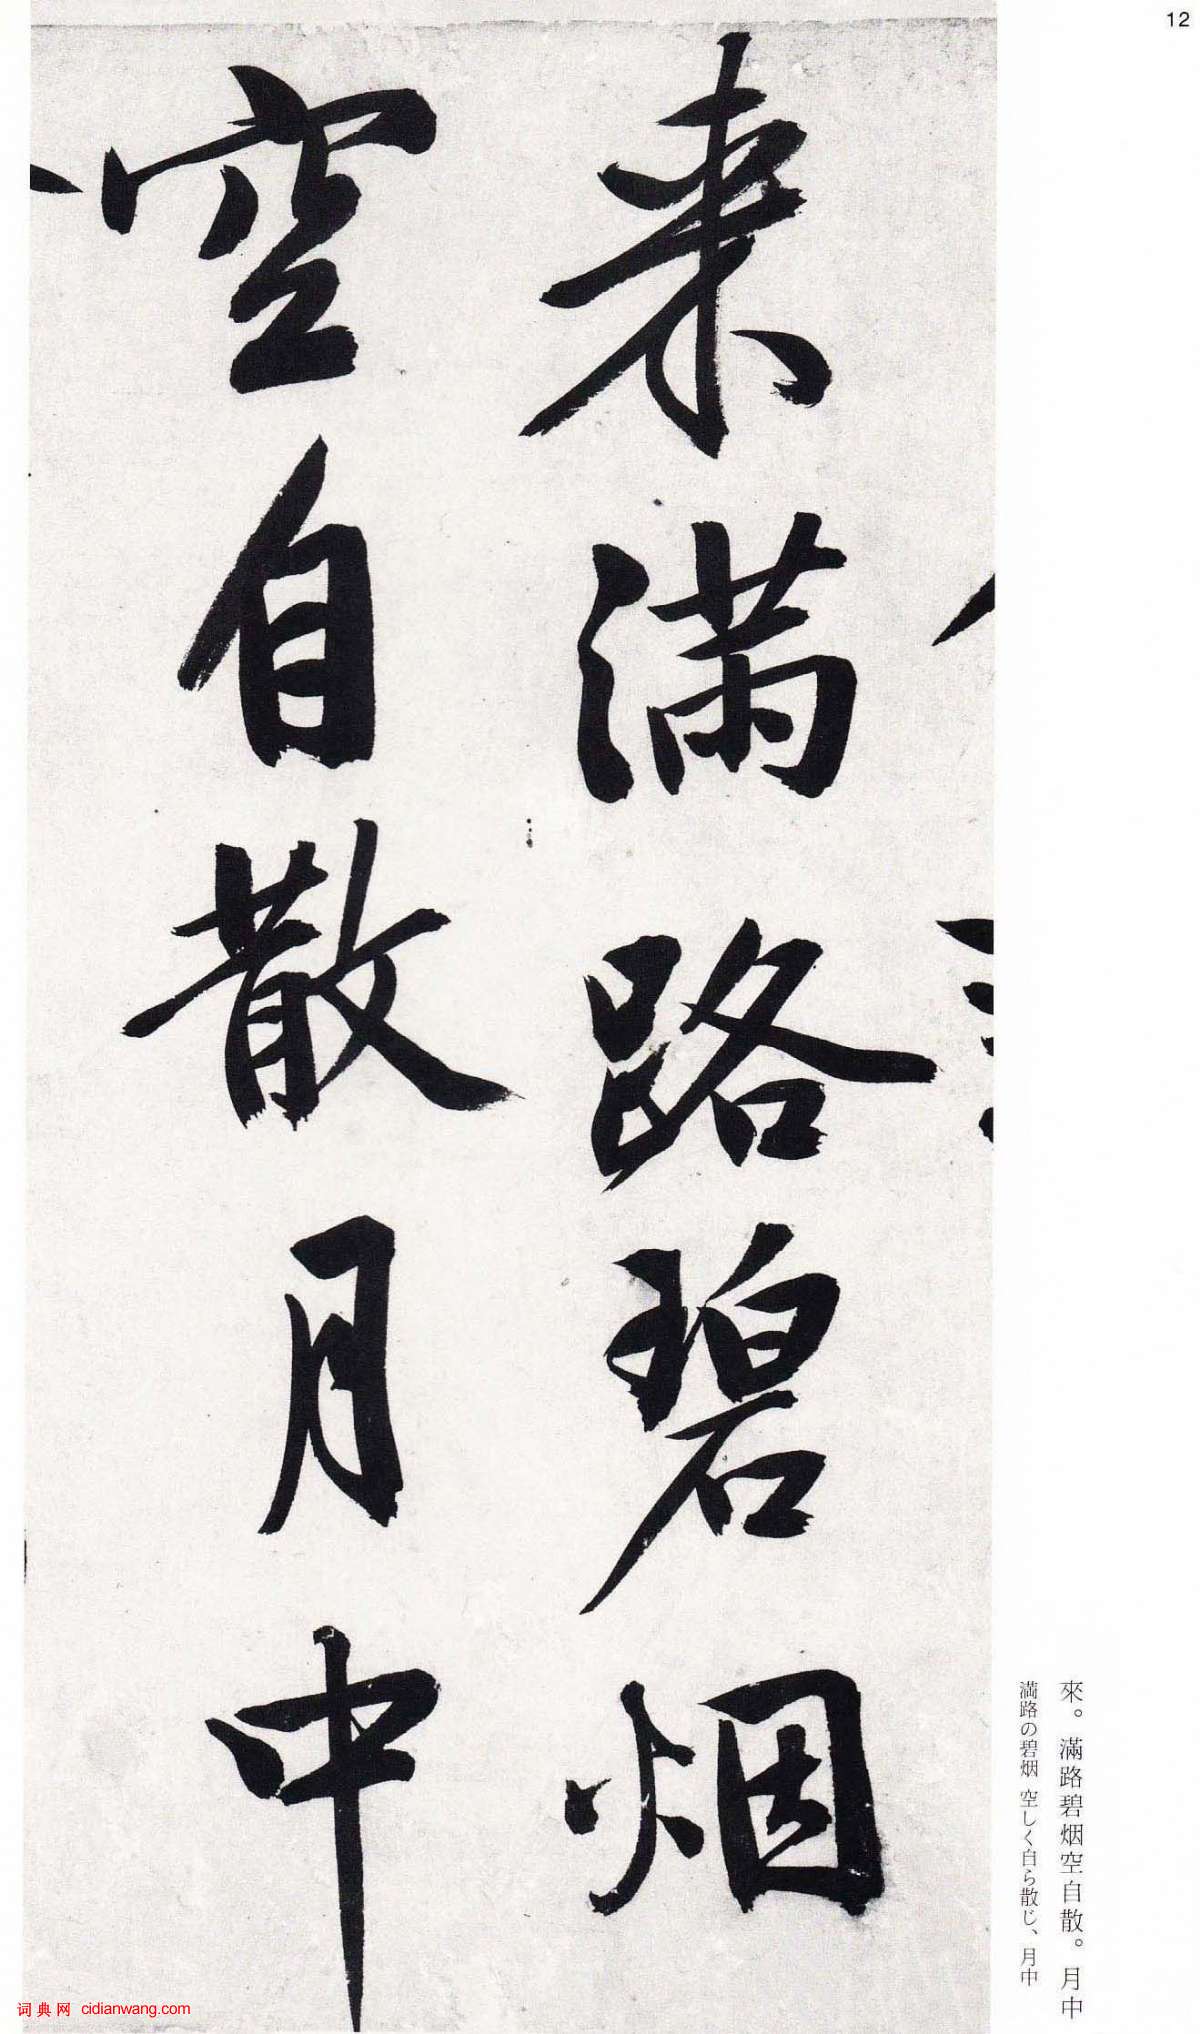 12
来满路碧烟
空自散月中
來。滿路碧烟空自散。月中
満路の碧烟 空しく自ら散じ、月中
词典网 cidianwang.com